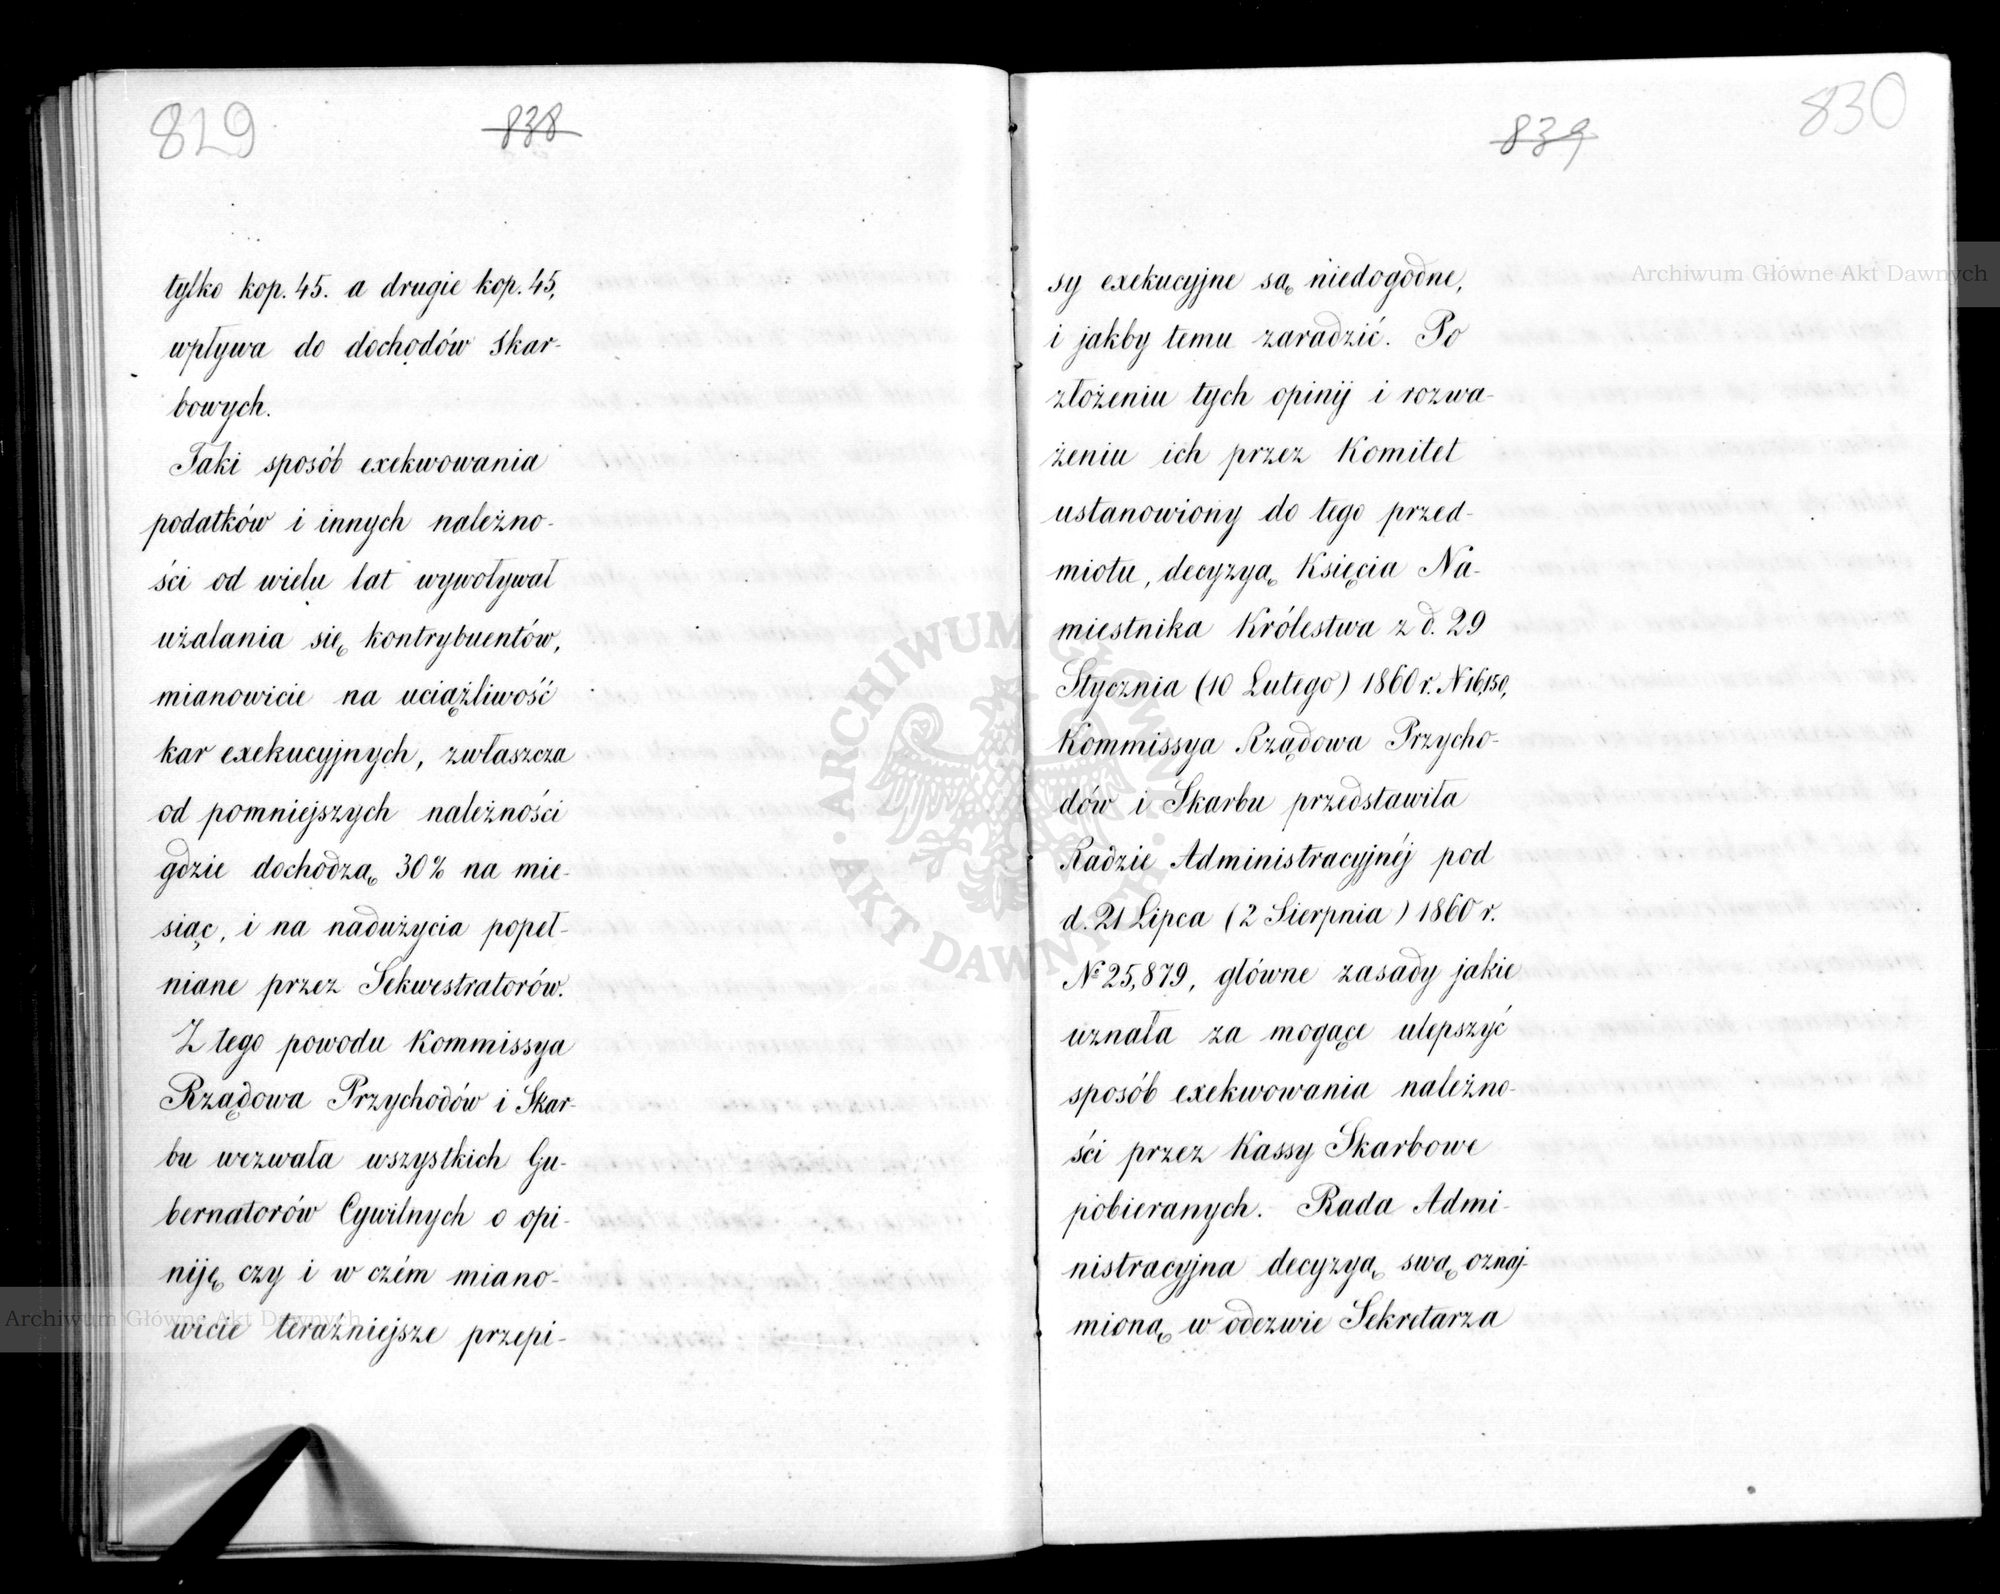 829
838
tylko kop. 45. a drugie kop. 45,
wpływa do dochodów Skar-
bowych.
Taki sposób exekwowania
podatków i innych należno-
ści od wielu lat wywoływał
użalania się kontrybuentów,
mianowicie na uciążliwość
kar exekucyjnych, zwłaszcza
od pomniejszych należności
gdzie dochodzą 30% na mie-
siąc, i na nadużycia popeł-
niane przez Sekwestratorów.
Z tego powodu Kommissya
Rządowa Przychodów i Skar-
bu wezwała wszystkich Gu-
bernatorów Cywilnych o opi-
niję czy i w czém miano-
wicie teraźniejsze przepi-
830
839
sy exekucyjne są niedogodne,
i jakby temu zaradzić. Po
złożeniu tych opinij i rozwa-
żeniu ich przez Komitet
ustanowiony do tego przed-
miotu, decyzyą Księcia Na-
miestnika Królestwa z d. 29
Stycznia (10 Lutego) 1860 r. N 16,150,
Kommissya Rządowa Przycho-
dów i Skarbu przedstawiła
Radzie Administracyjnéj pod
d. 21 Lipca (2 Sierpnia) 1860 r.
№ 25,879, główne zasady jakie
uznała za mogące ulepszyć
sposób exekwowania należno-
ści przez Kassy Skarbowe
pobieranych. Rada Admi-
nistracyjna decyzyą swą oznaj-
mioną w odezwie Sekretarza
Archiwum Główne Akt Dawnych
Archiwum Główne Akt Dawnych
ARCHIWUM GŁÓWNE
AKT DAWNYCH